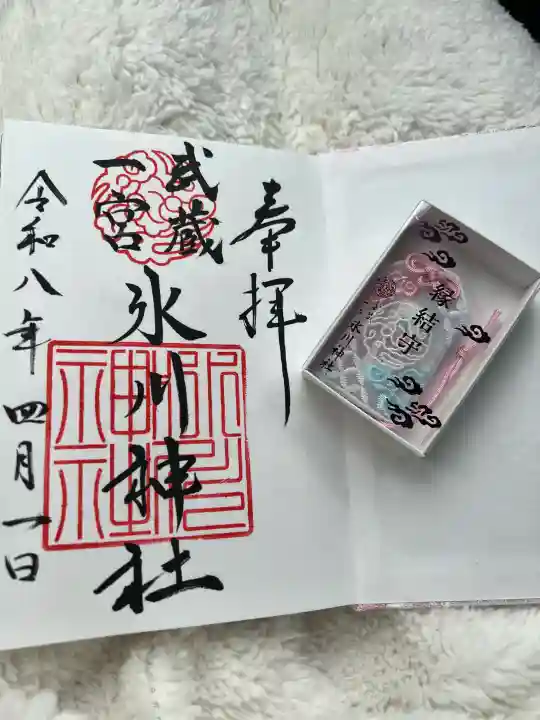 奉拝
武蔵
一宮
氷川神社
令和八年四月一日
氷川神社
縁結守
氷川神社